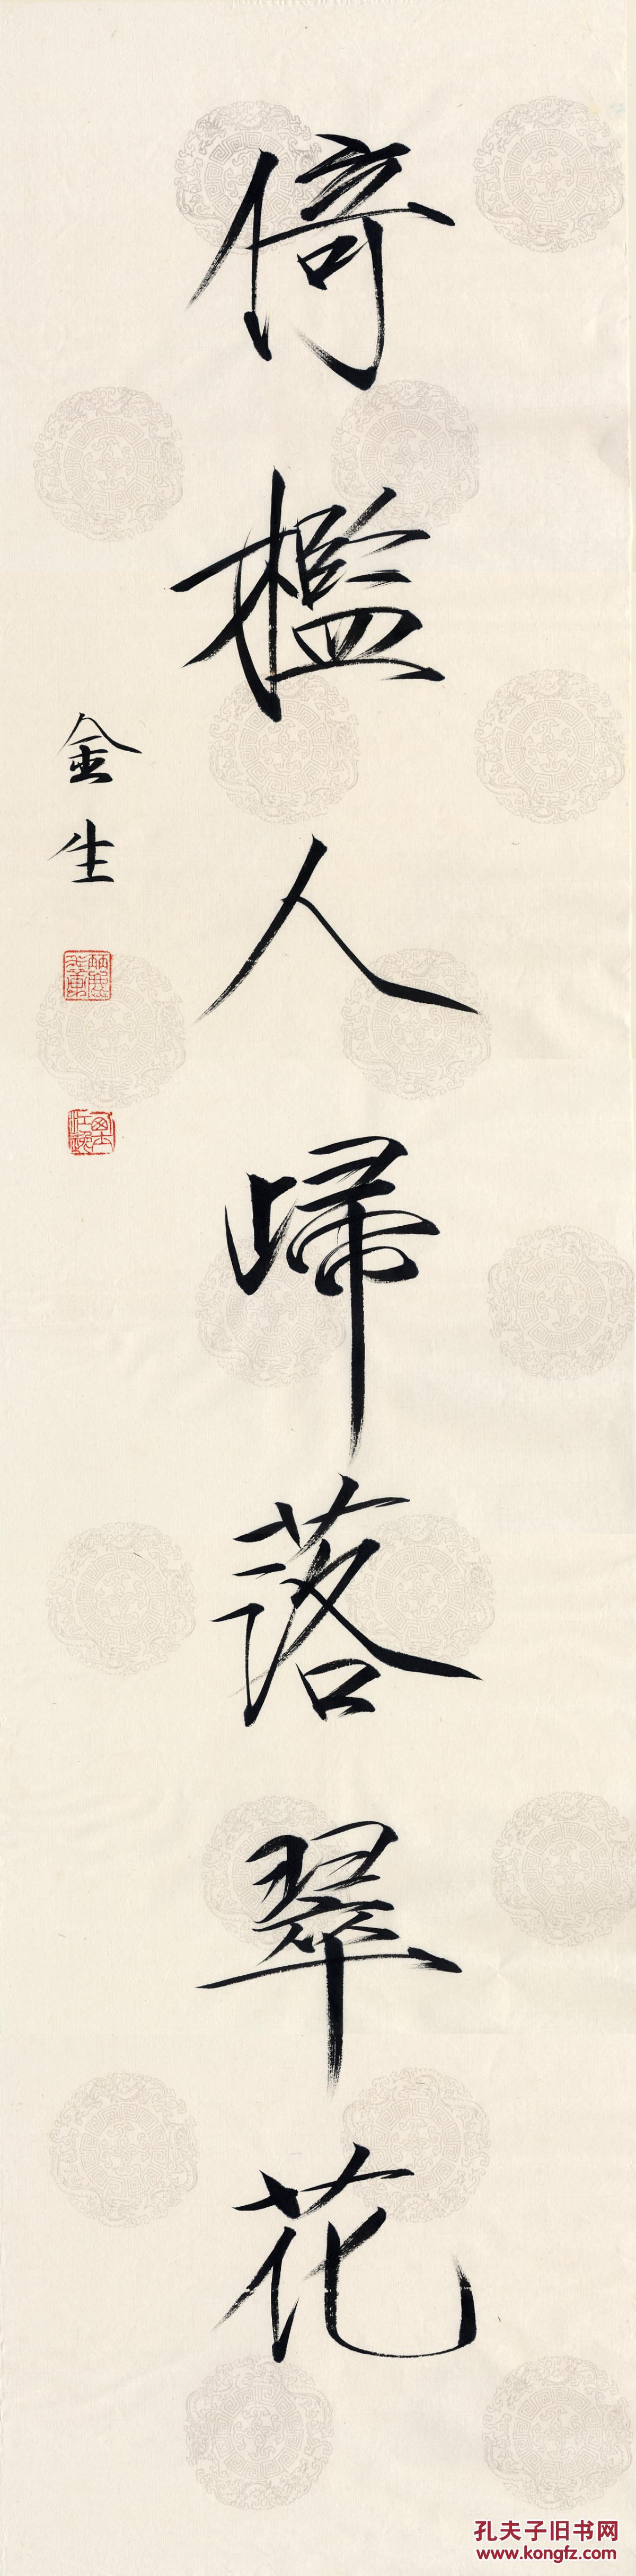 倚檻人歸落翠花
金生
孔夫子旧书网
www.kongfz.com